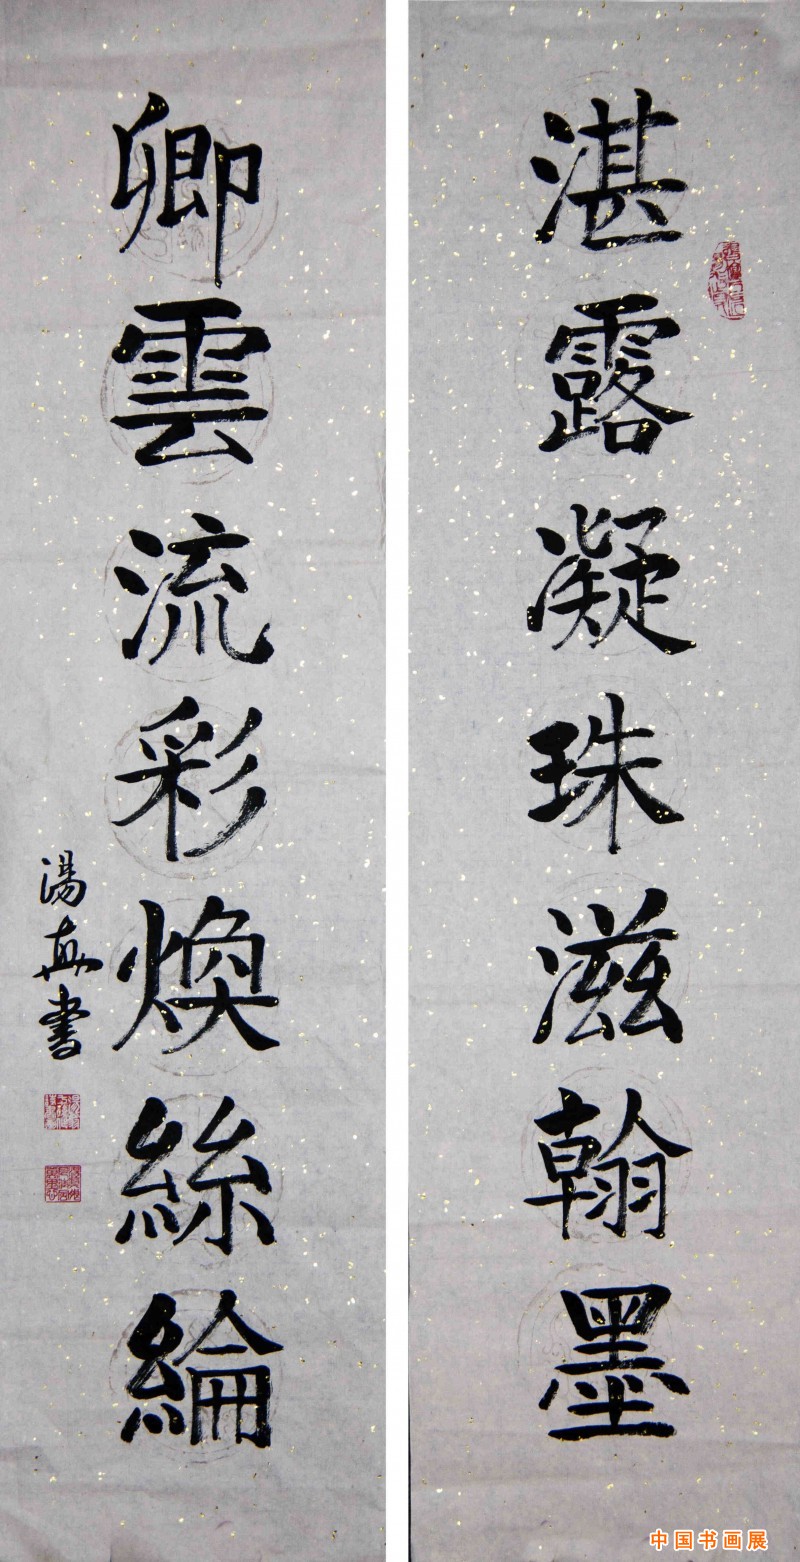 湛露凝珠滋翰墨
卿雲流彩煥絲綸
中国书画展